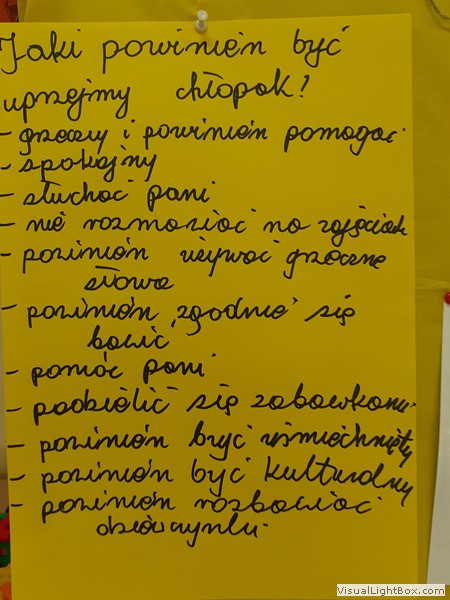 Jaki powinien być
uprzejmy chłopak?
- grzeczny i powinien pomagać
- spokojny
- słuchać pani
- nie rozmawiać na zajęciach
- powinien używać grzeczne
słowa
- powinien zgodnie się
bawić
- pomóc pani
- podzielić się zabawkami
- powinien być uśmiechnięty
- powinien być kulturalny
- powinien rozbawiać
dziewczynki.
VisualLightBox.com